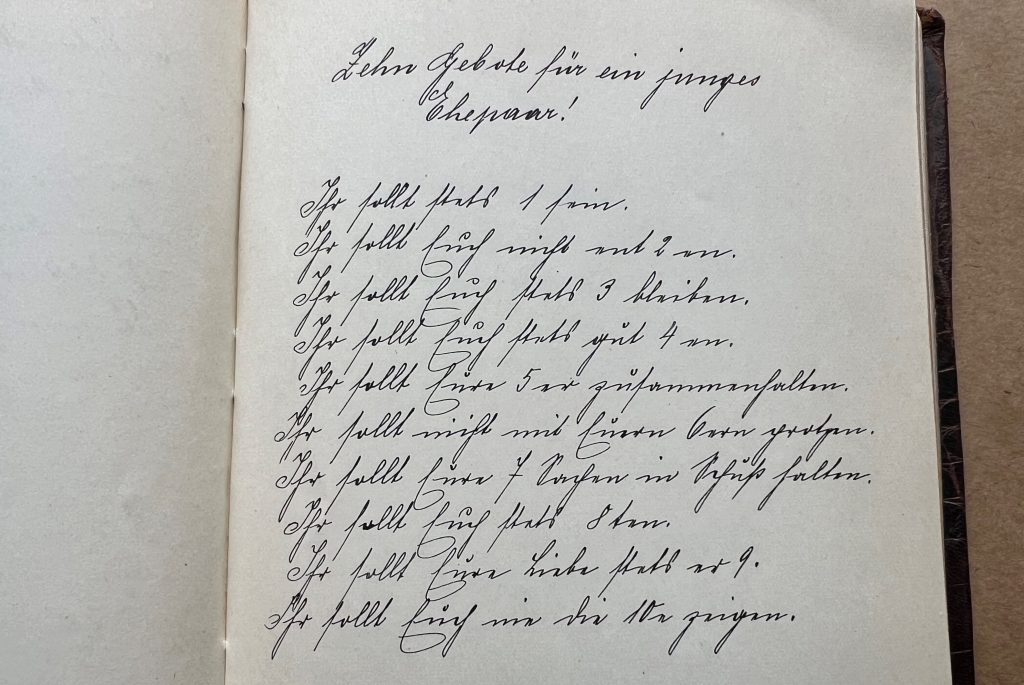 Zehn Gebote für ein junges
Ehepaar!
Ihr sollt stets 1 sein.
Ihr sollt Euch nicht ent 2 en.
Ihr sollt Euch stets 3 bleiben.
Ihr sollt Euch stets gut 4 en.
Ihr sollt Eure 5 er zusammenhalten.
Ihr sollt nicht mit Euern 6ern protzen.
Ihr sollt Eure 7 Sachen in Schuß halten.
Ihr sollt Euch stets 8ten.
Ihr sollt Eure Liebe stets er 9.
Ihr sollt Euch nie die 10e zeigen.